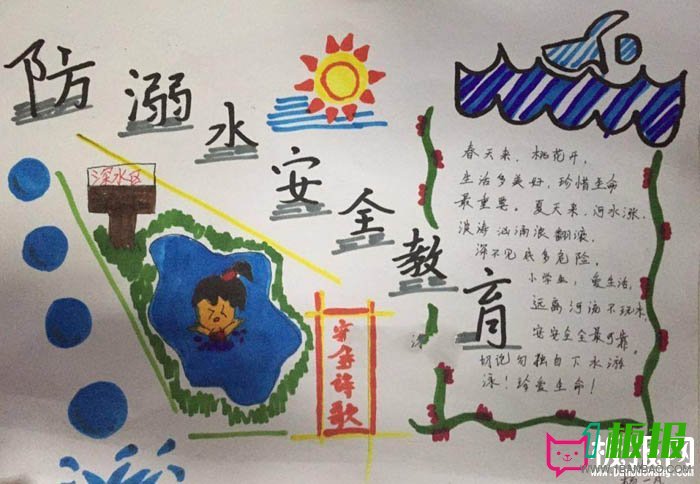 防溺水安全教育
深水区
安全诗歌
春天来，桃花开，
生活多美好，珍惜生命
最重要。夏天来，河水涨，
浪涛汹涌浪翻滚，
深不见底多危险。
小学生，爱生活，
远离河汤不玩水，
安安全全最可靠。
切记勿独自下水游
泳！珍爱生命！
板报
WWW.1BANBAO.COM